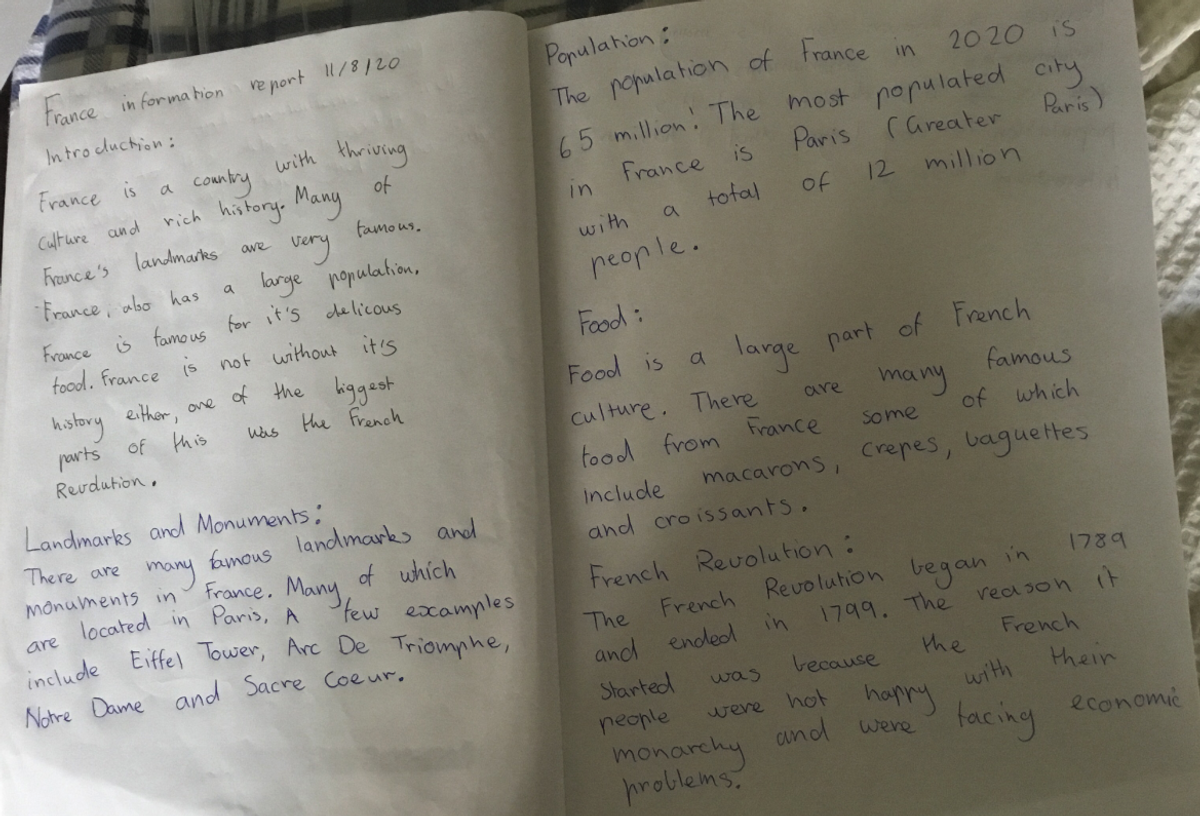 France information report 11/8/20
Introduction:
France is a country with thriving
culture and rich history. Many of
France's landmarks are very famous.
France, also has a large population.
France is famous for it's delicous
food. France is not without it's
history either, one of the biggest
parts of this was the French
Revolution.
Landmarks and Monuments:
There are many famous landmarks and
monuments in France. Many of which
are located in Paris. A few examples
include Eiffel Tower, Arc De Triomphe,
Notre Dame and Sacre Coeur.
Population:
The population of France in 2020 is
65 million! The most populated city
in France is Paris (Greater Paris)
with a total of 12 million
people.
Food:
Food is a large part of French
culture. There are many famous
food from France some of which
include macarons, crepes, baguettes
and croissants.
French Revolution:
The French Revolution began in 1789
and ended in 1799. The reason it
started was because the French
people were not happy with their
monarchy and were facing economic
problems.